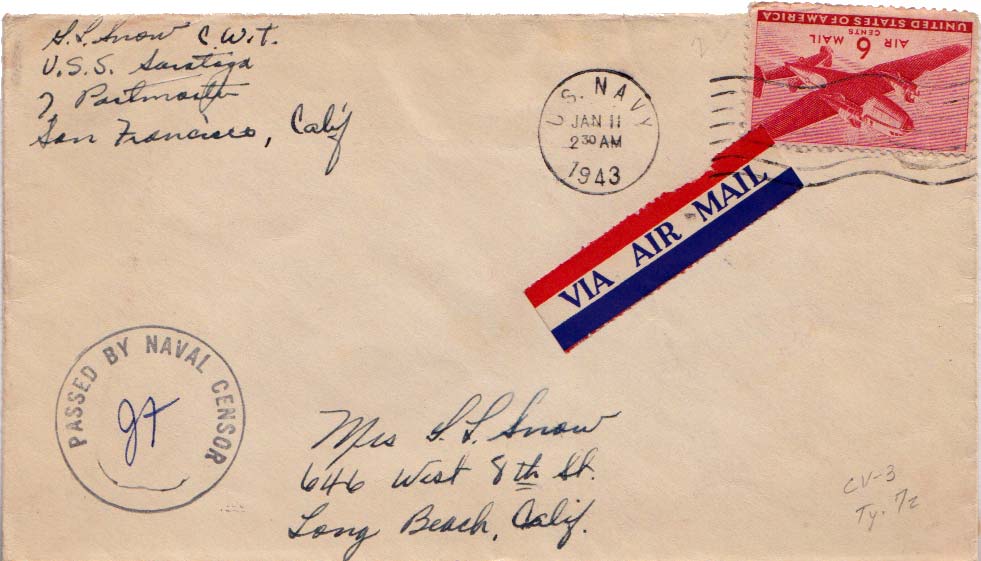 S.L. Snow C.W.T.
U.S.S. Saratoga
% Postmaster
San Francisco, Calif
U.S. NAVY
JAN 11
2 30 AM
1943
UNITED STATES OF AMERICA
AIR MAIL
6 CENTS
VIA AIR MAIL
PASSED BY NAVAL CENSOR
Mrs S.L. Snow
646 West 8th St.
Long Beach, Calif.
CV-3
Ty. 7z